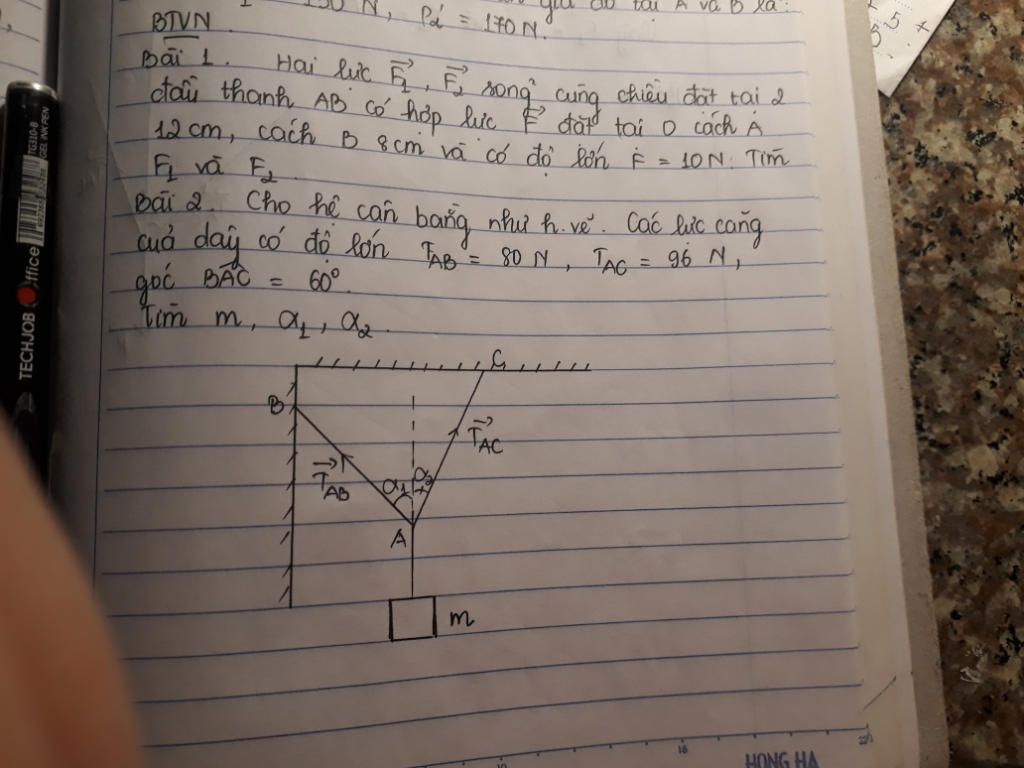 giá đỡ tại A và B là:
150 N, P2' = 170 N.
BTVN
Bài 1. Hai lực F1, F2 song² cùng chiều đặt tại 2
đầu thanh AB có hợp lực F đặt tại O cách A
12 cm, cách B 8 cm và có độ lớn F = 10 N. Tìm
F1 và F2.
Bài 2. Cho hệ cân bằng như h.vẽ. Các lực căng
của dây có độ lớn TAB = 80 N, TAC = 96 N,
góc BAC = 60°.
Tìm m, α1, α2.
C
B
TAC
TAB
α1 α2
A
m
TECHJOB Office
TG310-B
GEL INK PEN
5
HONG HA